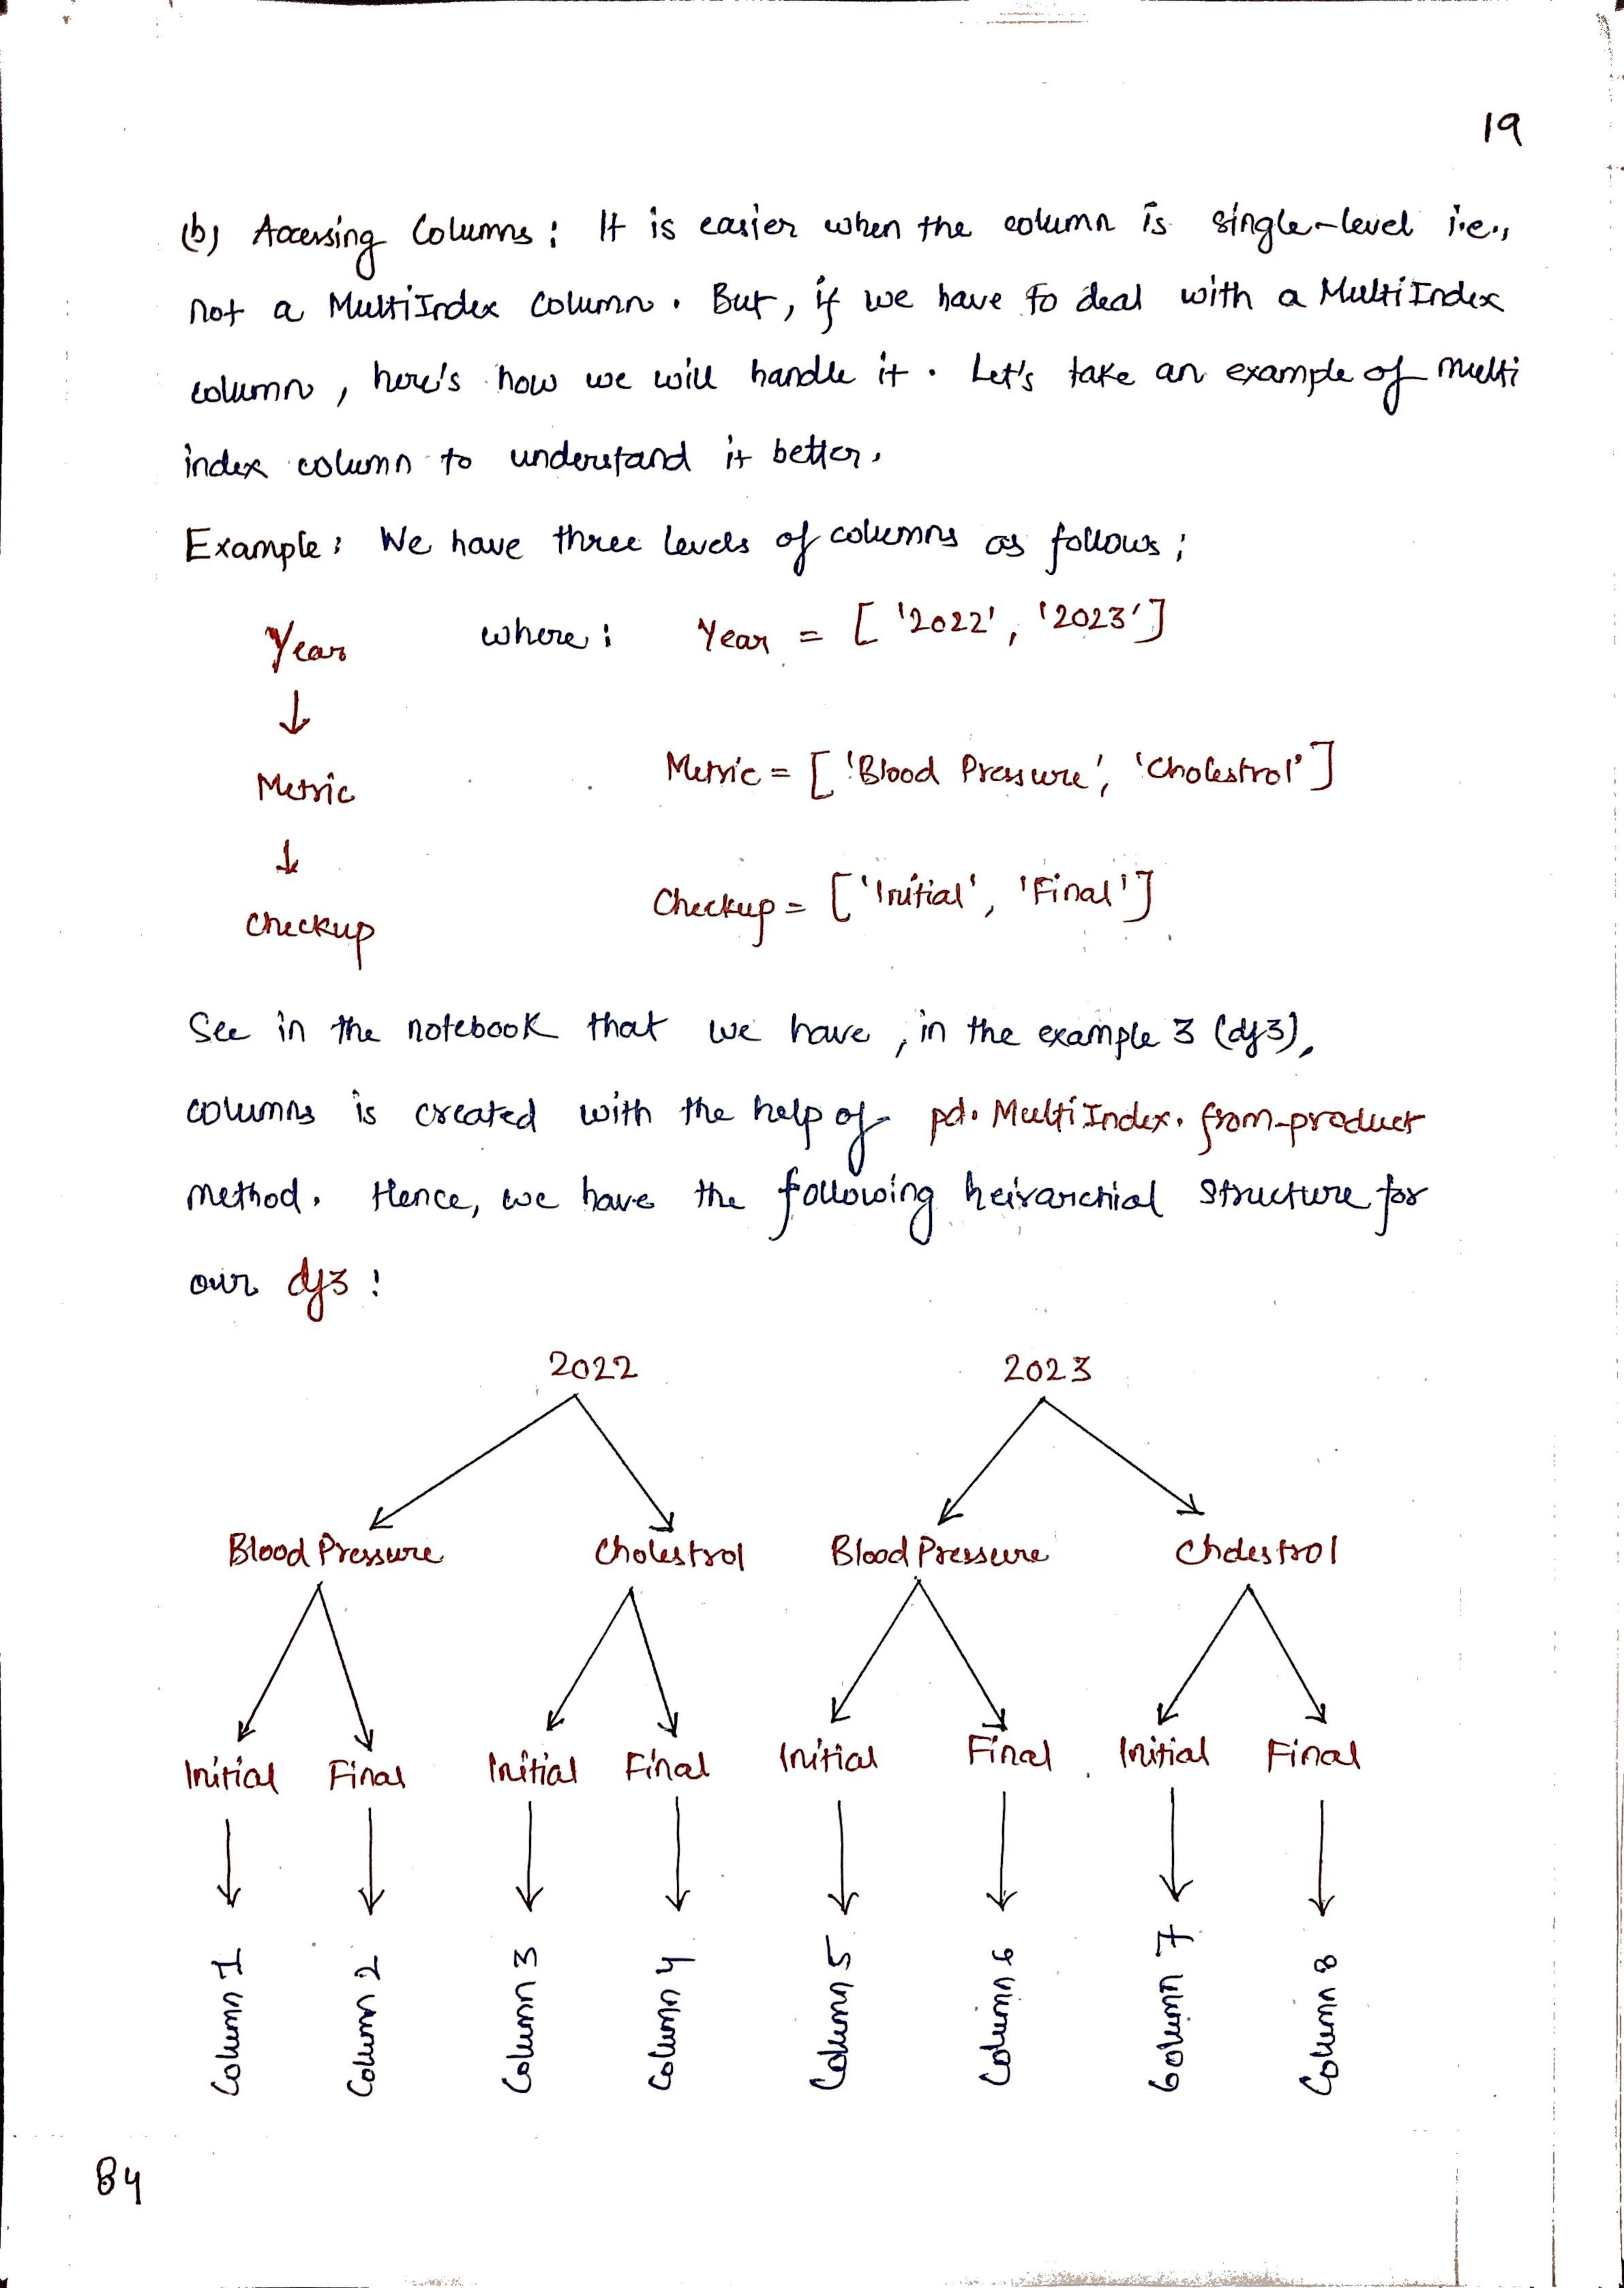 19
(b) Accessing Columns : It is easier when the column is single-level i.e.,
not a MultiIndex Column. But, if we have to deal with a MultiIndex
column, here's how we will handle it. Let's take an example of multi
index column to understand it better.
Example : We have three levels of columns as follows ;
Year where : Year = ['2022', '2023']
↓
Metric Metric = ['Blood Pressure', 'Cholestrol']
↓
Checkup Checkup = ['Initial', 'Final']
See in the notebook that we have, in the example 3 (df3),
columns is created with the help of pd.MultiIndex.from_product
method. Hence, we have the following heirarichial structure for
our df3 :
2022 2023
Blood Pressure Cholestrol Blood Pressure Cholestrol
Initial Final Initial Final Initial Final Initial Final
Column 1 Column 2 Column 3 Column 4 Column 5 Column 6 Column 7 Column 8
84